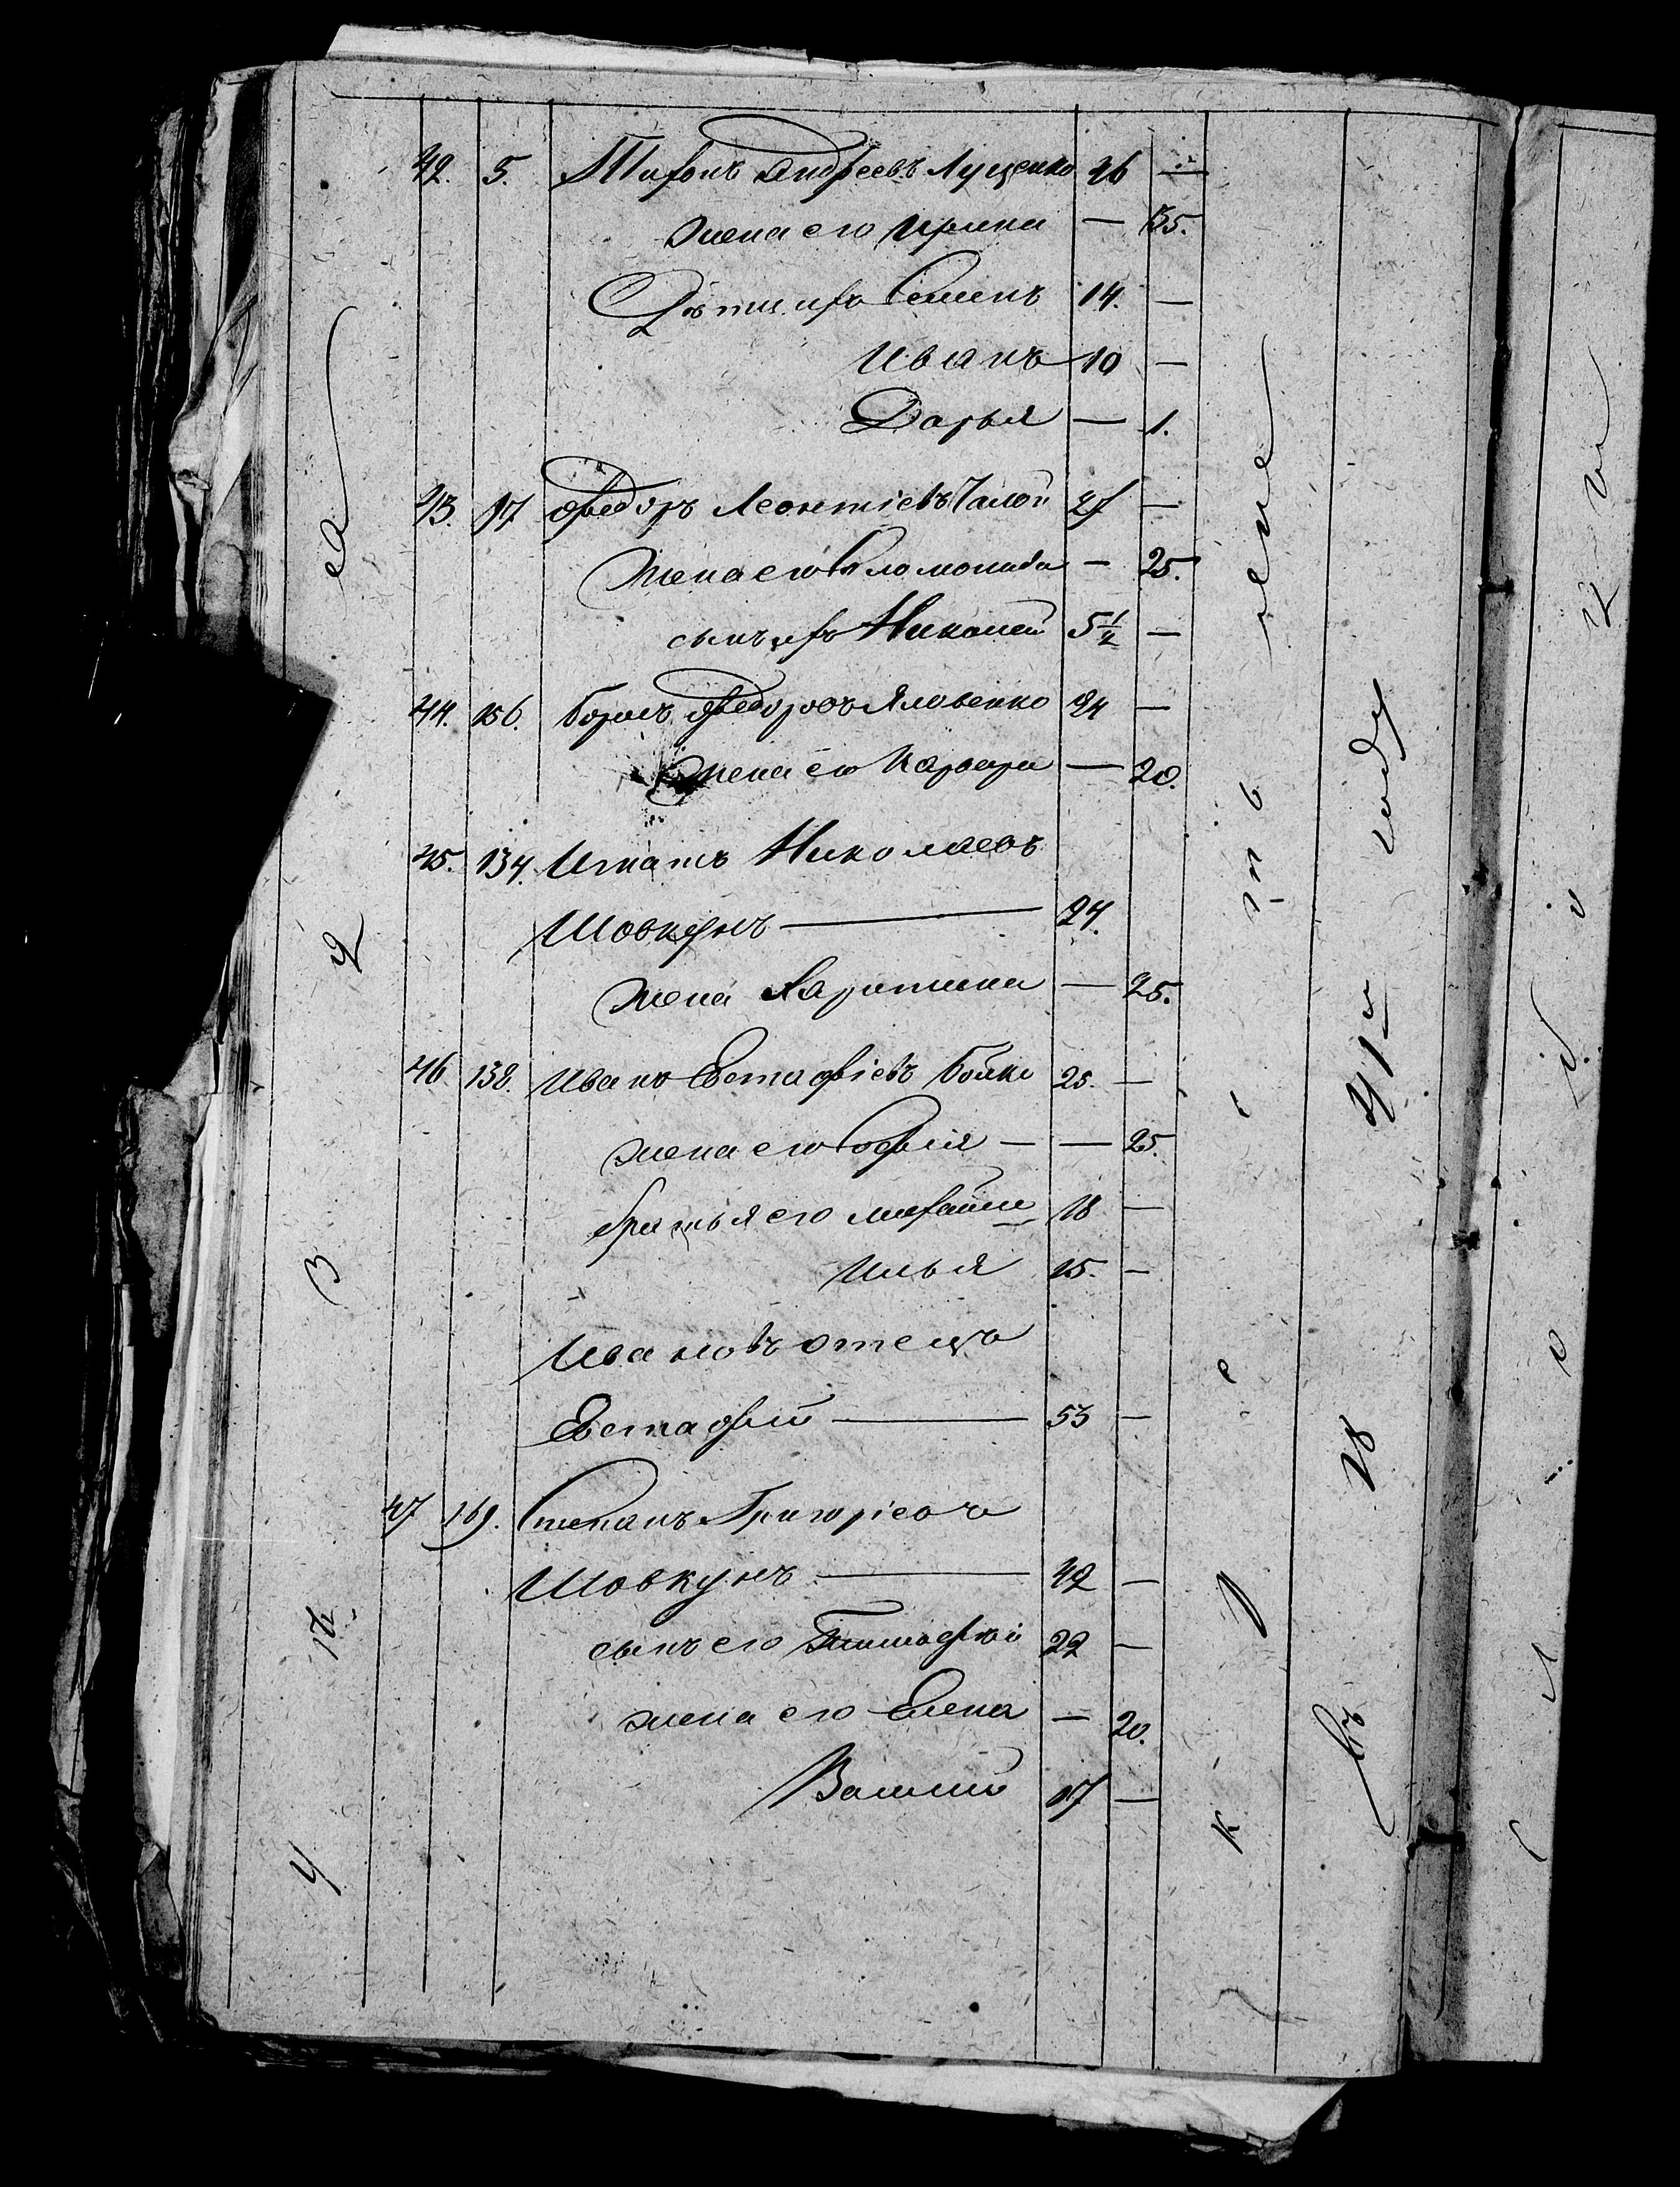 42. 5. Тихонъ Андреевъ Луценко 36 —
жена его Ирина — 35.
Дѣти ихъ Семенъ 14. —
Иванъ 10 —
Дарья — 1.
43. 17 Федоръ Леонтіевъ 27 —
жена его Соломонида — 25.
сынъ ихъ Николай 5½ —
44. 156. Борисъ Федоровъ Яловенко 24 —
жена его Варвара — 20.
45. 134. Игнатъ Николаевъ
Шовкунъ — 24.
жена Харитина — 25.
46 138. Иванъ Евстафіевъ Бойко 25. —
жена его Софья — — 25.
братья его Михайло 18 —
Илья 15. —
Ивановъ отецъ
Евстафій — 53 —
47 169. Степанъ Григоріевъ
Шовкунъ — 42 —
сынъ его Тимофей 22 —
жена его Елена — 20.
Василий 17 —
Въ 18 41м году